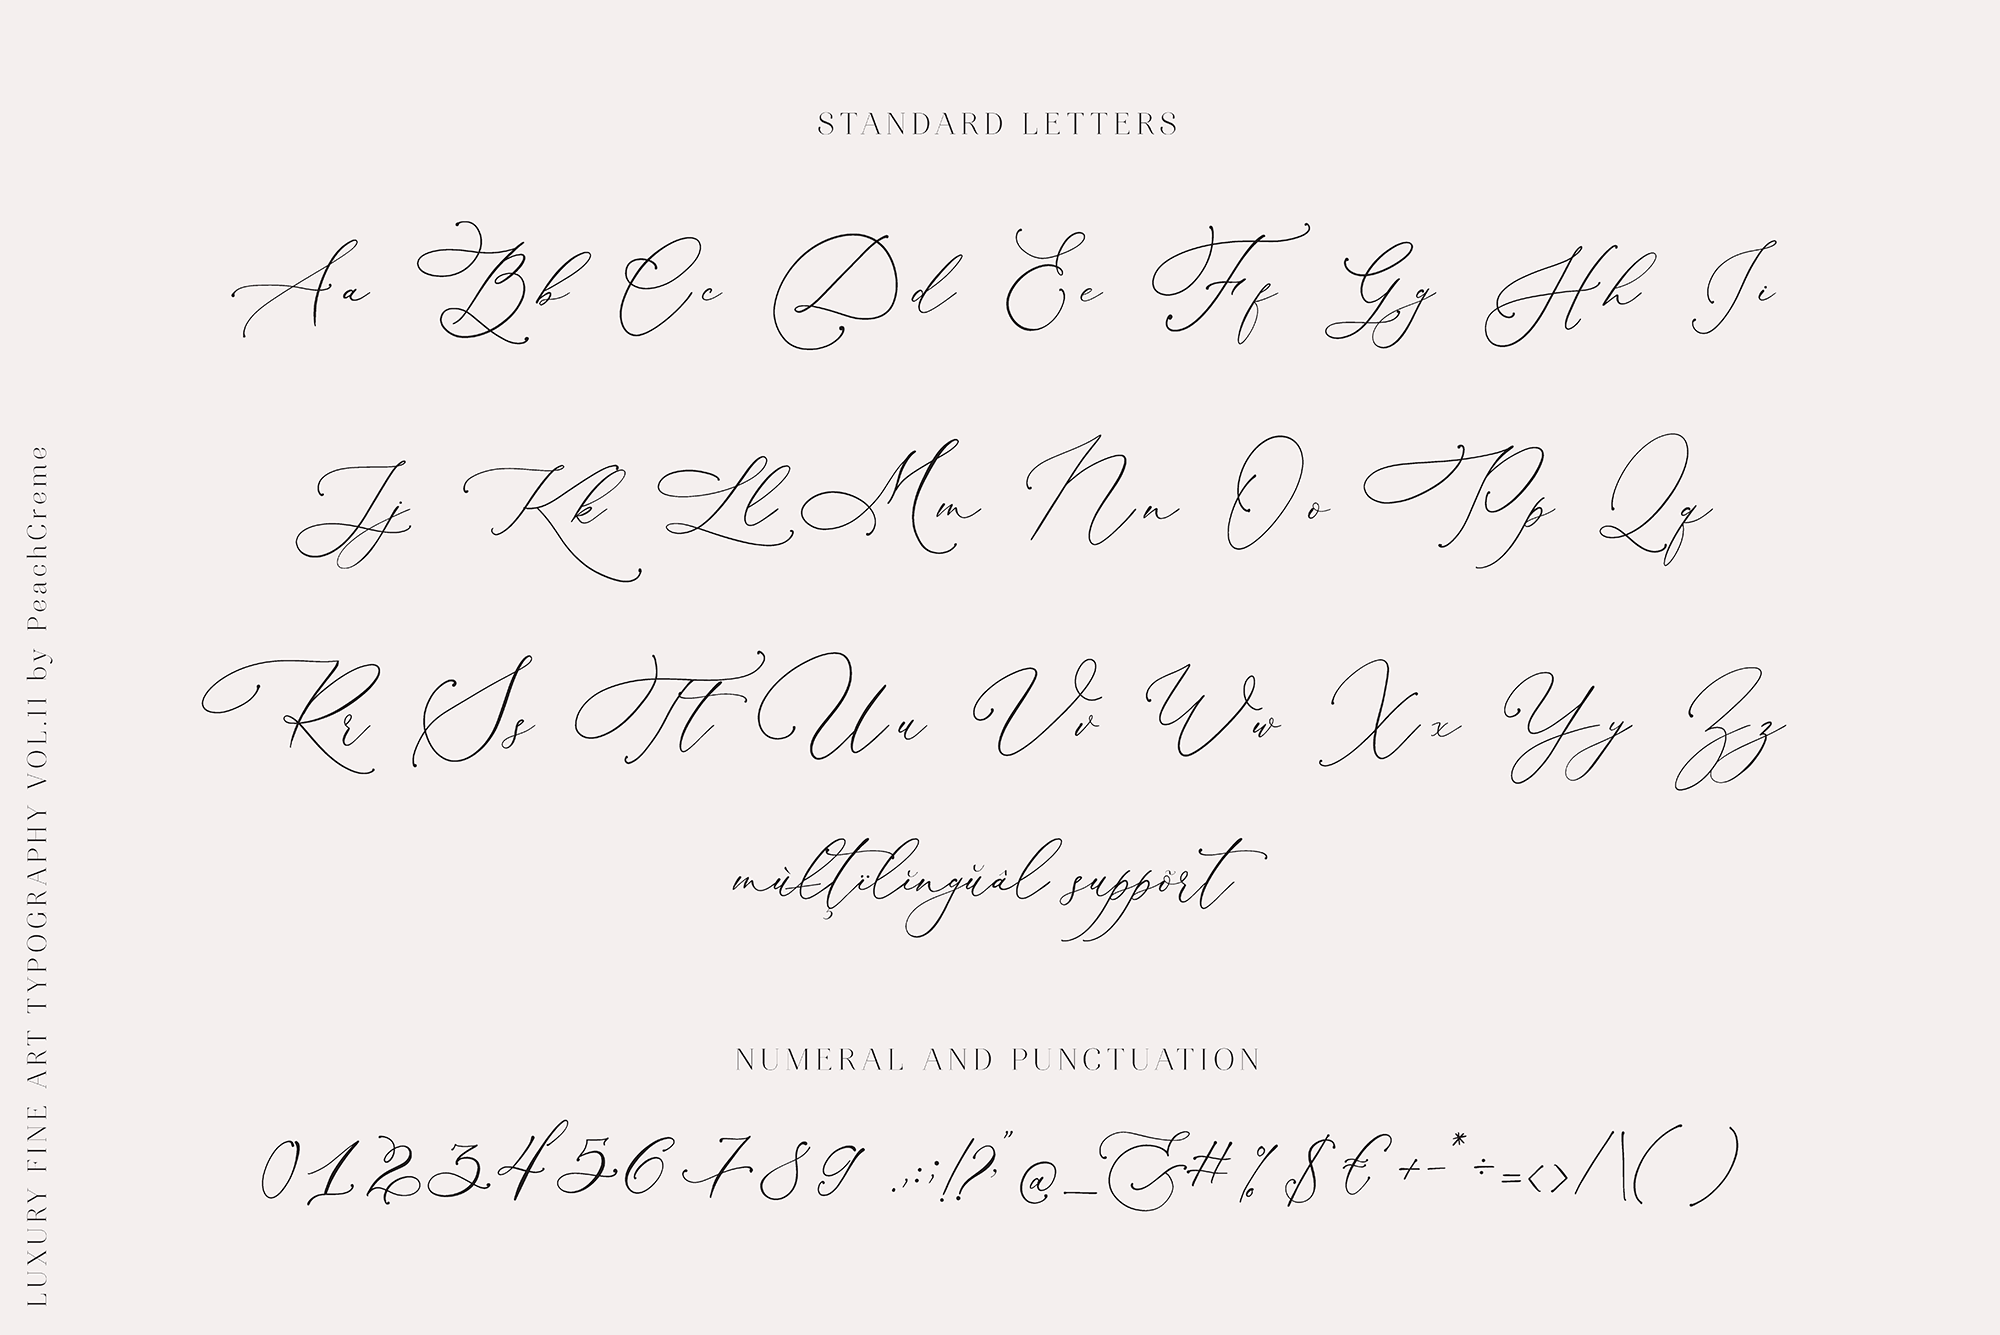 STANDARD LETTERS
Aa Bb Cc Dd Ee Ff Gg Hh Ii
Jj Kk Ll Mm Nn Oo Pp Qq
Rr Ss Tt Uu Vv Ww Xx Yy Zz
mùlţïlĭngŭâl suppõrt
NUMERAL AND PUNCTUATION
0123456789 .,:;!?"' @_&#%$€+-*÷=<>/\( )
LUXURY FINE ART TYPOGRAPHY VOL.II by PeachCreme